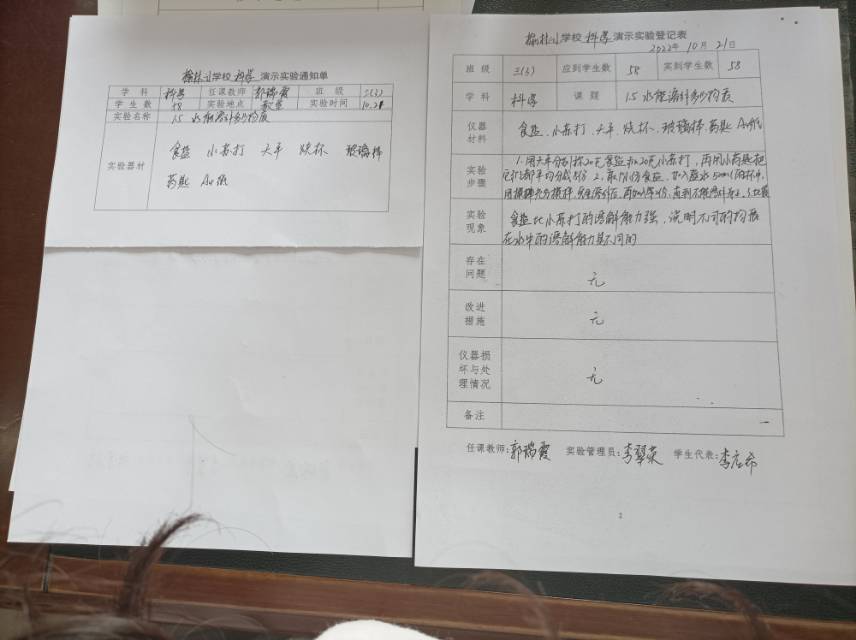 学校科学演示实验通知单
学 科 科学 任课教师 郭瑞霞 班 级 三(3)
学 生 数 58 实验地点 教室 实验时间 10.21
实验名称 1.5 水能溶解多少物质
实验器材
食盐 小苏打 天平 烧杯 玻璃棒
药匙 A4纸
学校科学演示实验登记表
2022年10月21日
班 级 三(3) 应到学生数 58 实到学生数 58
学 科 科学 课 题 1.5 水能溶解多少物质
仪器材料 食盐、小苏打、天平、烧杯、玻璃棒、药匙 A4纸
实验步骤 1.用天平分别称20克食盐和20克小苏打,再用小药匙把
它们都平均分成
用搅拌充分搅拌,完全溶解后,再加入第2份,直到不能溶解为止
实验现象 食盐比小苏打的溶解能力强,说明不同的物质
在水中的溶解能力是不同的
存在问题 无
改进措施 无
仪器损坏与处理情况 无
备注
任课教师:郭瑞霞 实验管理员:李翠英 学生代表:李
2